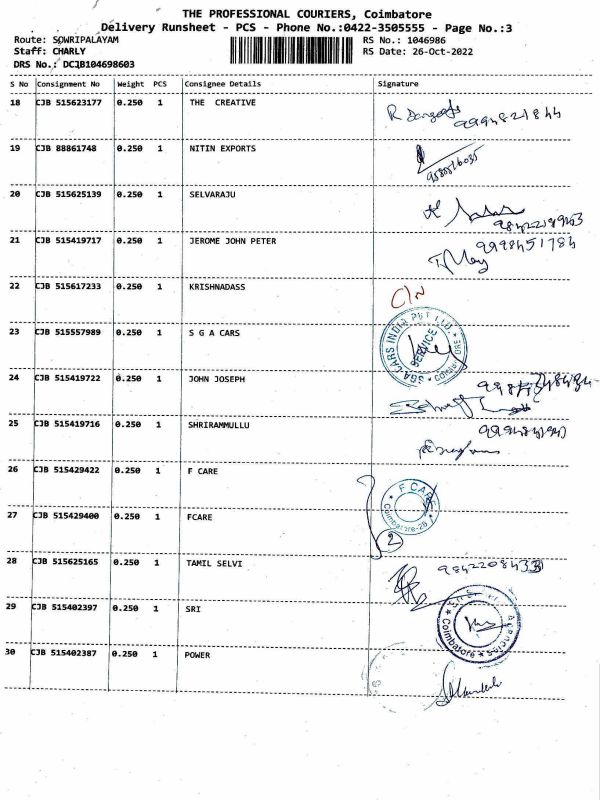 THE PROFESSIONAL COURIERS, Coimbatore
Delivery Runsheet - PCS - Phone No.:0422-3505555 - Page No.:3
Route: SOWRIPALAYAM RS No.: 1046986
Staff: CHARLY RS Date: 26-Oct-2022
DRS No.: DCJB104698603
S No Consignment No Weight PCS Consignee Details Signature
18 CJB 515623177 0.250 1 THE CREATIVE
9994821844
19 CJB 88861748 0.250 1 NITIN EXPORTS
20 CJB 515625139 0.250 1 SELVARAJU
21 CJB 515419717 0.250 1 JEROME JOHN PETER
9998451784
22 CJB 515617233 0.250 1 KRISHNADASS
C/N
23 CJB 515557989 0.250 1 S G A CARS
SGA CARS INDIA PVT LTD. * COIMBATORE *
SERVICE
24 CJB 515419722 0.250 1 JOHN JOSEPH
25 CJB 515419716 0.250 1 SHRIRAMMULLU
26 CJB 515429422 0.250 1 F CARE
* F CARE * Coimbatore-28
27 CJB 515429400 0.250 1 FCARE
2
28 CJB 515625165 0.250 1 TAMIL SELVI
29 CJB 515402397 0.250 1 SRI
Agencies * Coimbatore *
30 CJB 515402387 0.250 1 POWER